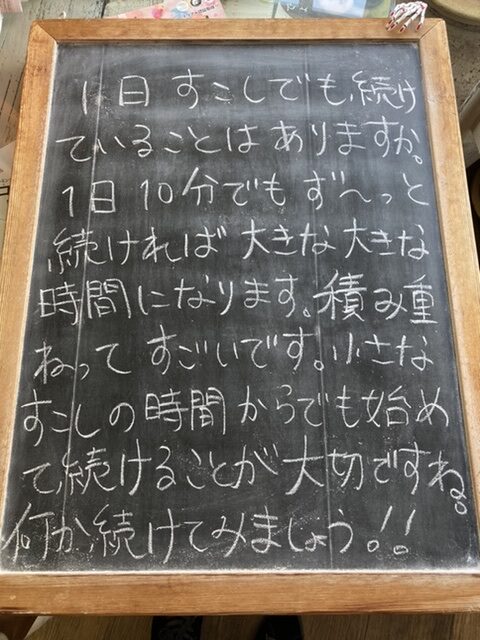 1日 すこしでも、続け
ていることは ありますか。
1日10分でも ず〜っと
続ければ 大きな大きな
時間になります。積み重
ねって すごいです。小さな
すこしの時間からでも始め
て続けることが大切ですね。
何か、続けてみましょう!!